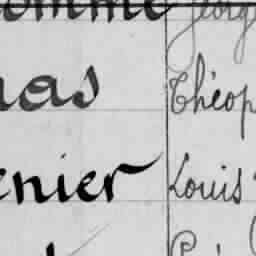 omme Georg
nas Théop
enier Louis